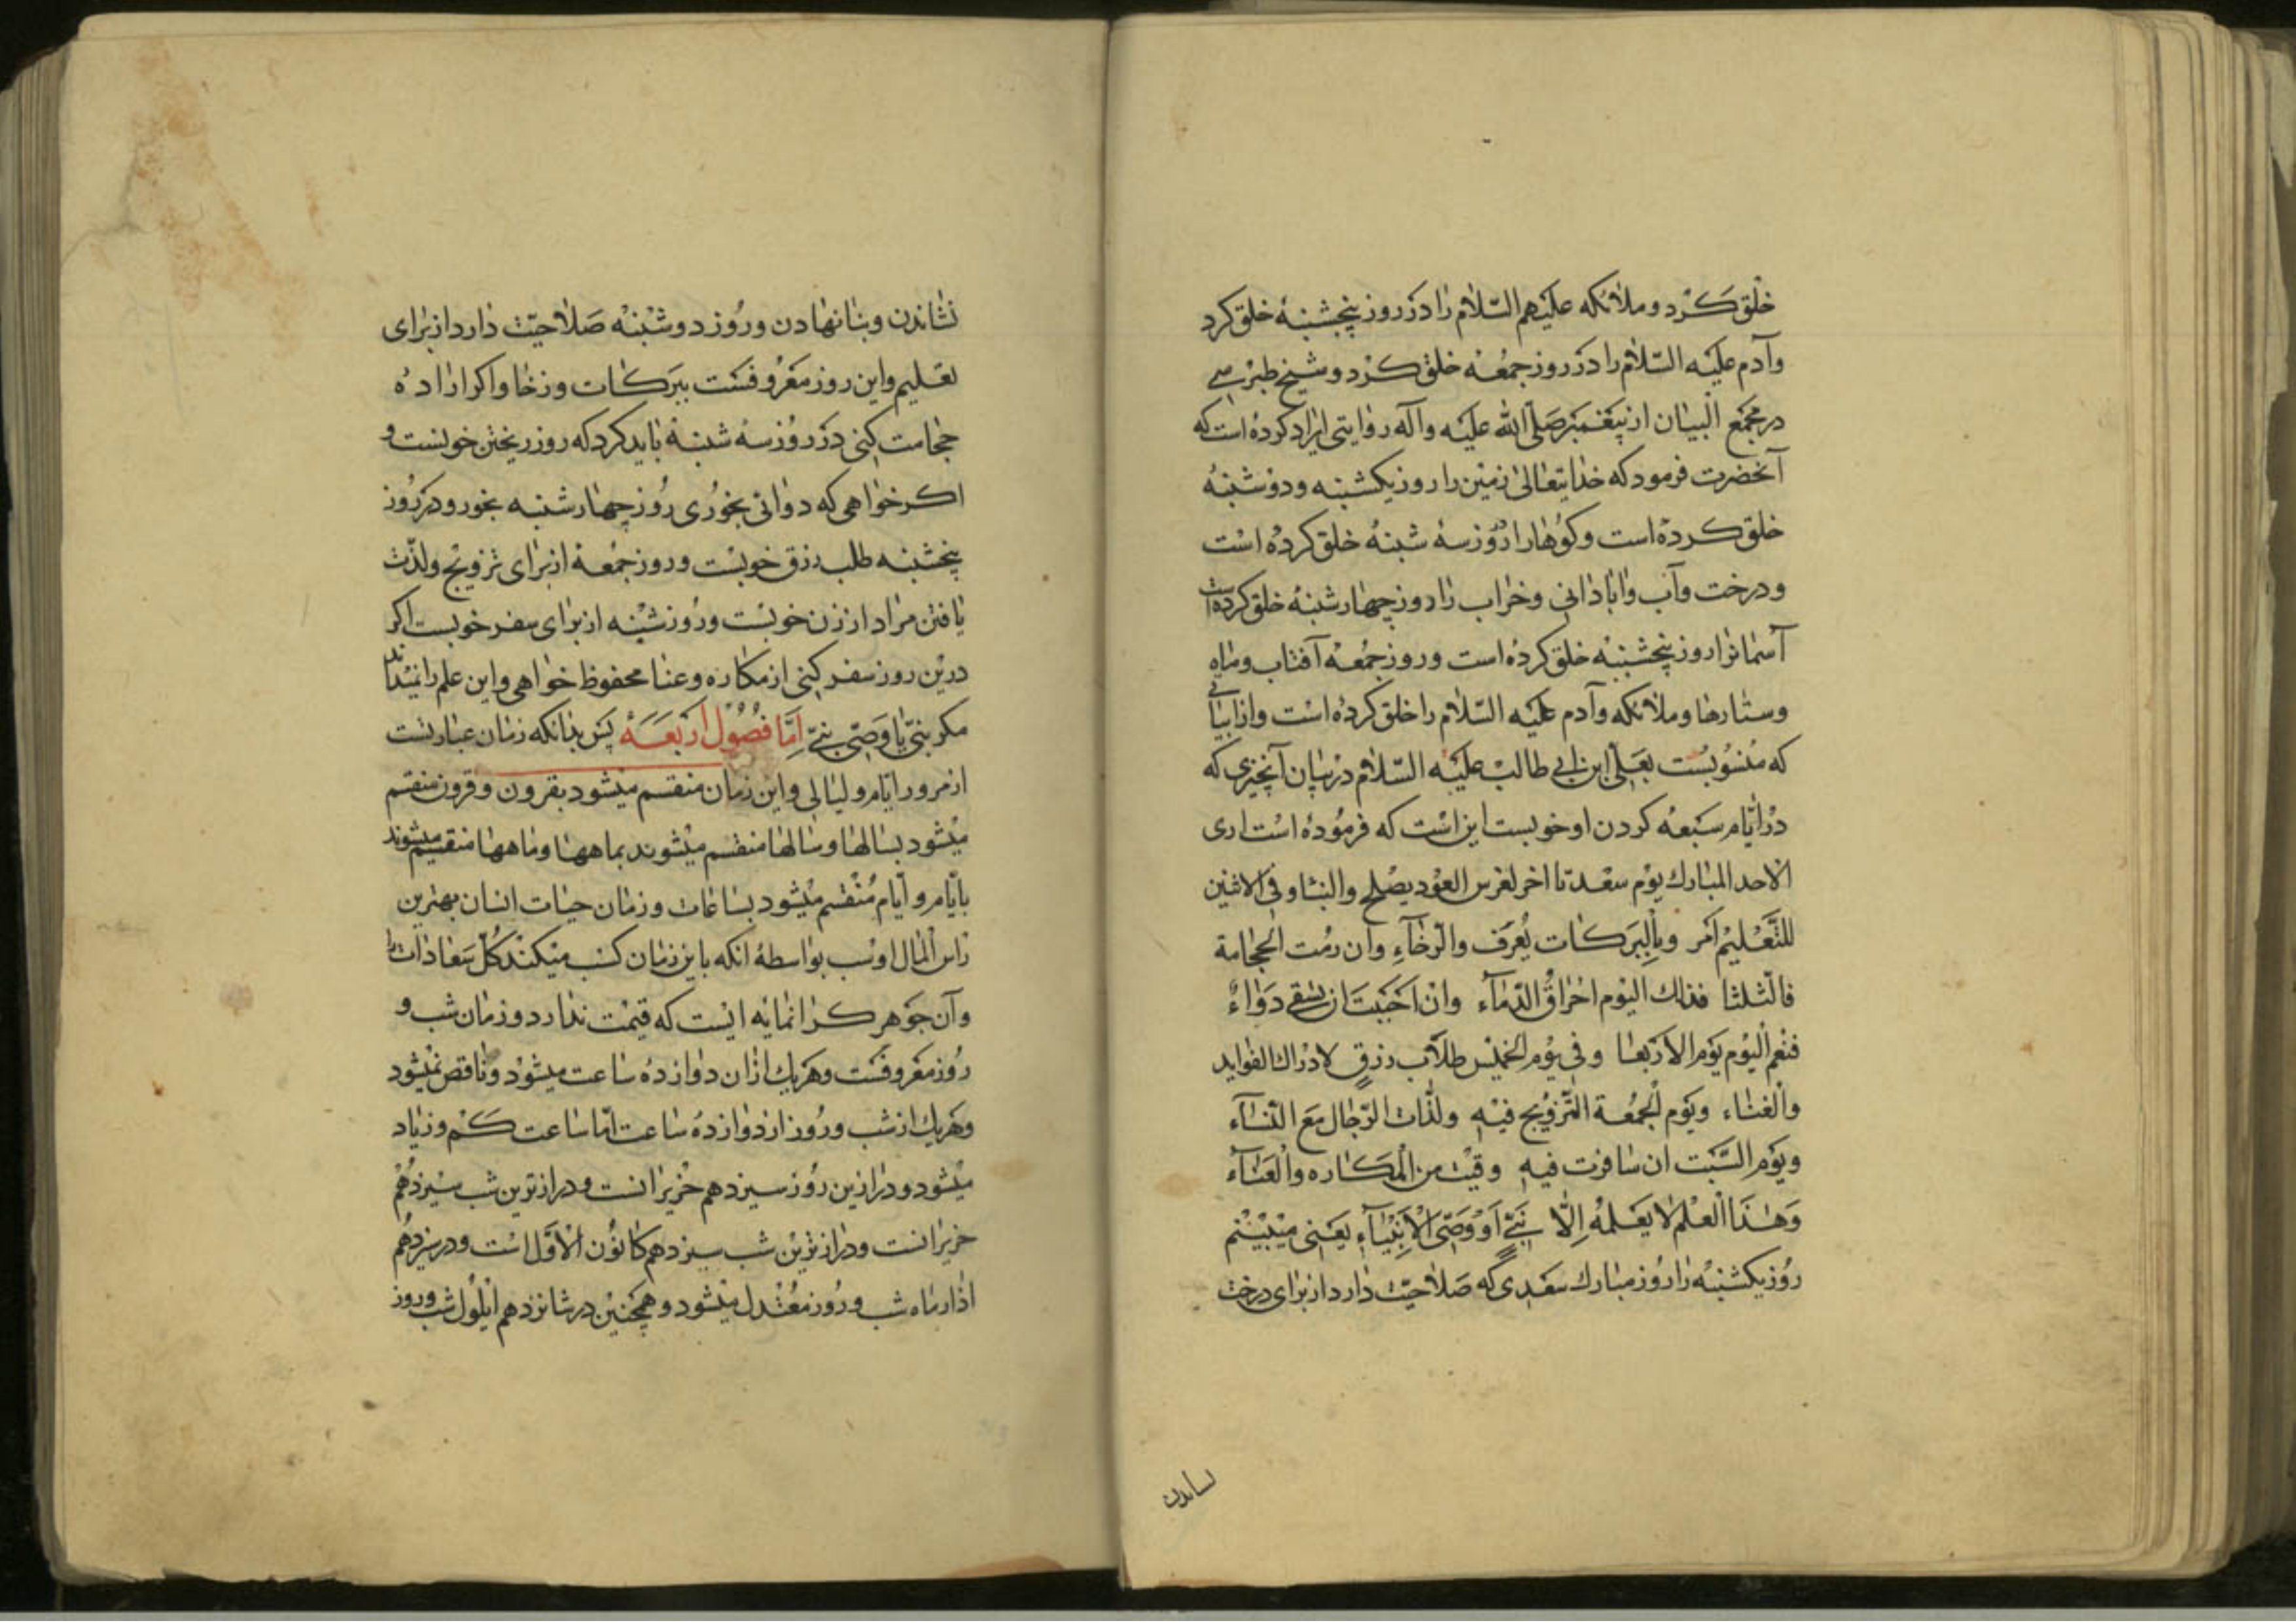 خلق کرد وملائکه علیهم السّلام را در روز پنجشنبه خلق کرد
وآدم علیه السّلام را در روز جمعه خلق کرد و شیخ طبرسی
در مجمع البیان از پیغمبر صلّی الله علیه وآله روایتی ایراد کرده است که
آنحضرت فرمود که خدایتعالی زمین را روز یکشبنه ودوشنبه
خلق کرده است وکوهها را روز سه شبنه خلق کرده است
ودرخت وآب وابادانی وخراب را روز چهارشنبه خلق کرده است
آسمانرا روز پنجشنبه خلق کرده است وروز جمعه آفتاب وماه
وستارها وملائکه وآدم علیه السّلام را خلق کرده است واز ابیاتی
که منسوبست بعلی ابن ابی طالب علیه السّلام در بیان آنچیزی که
در ایّام سبعه کردن او خوبست این است که فرموده است اری
الاحد المبارك یوم سعد تا اخر لغرس العود یصلح والبنا وفی الاثنین
للتّعلیم امر وبالبرکات یعرف والرّخآء وان رمت الحجامة
فالثلثا فذاك الیوم اخراق الدّمآء وان احببت ان یسقی دواءً
فنعم الیوم یوم الاربعا وفی یوم الخمیس طلّاب رزقٍ لادراك الفواید
والغناء ویوم الجمعة التّزویج فیه ولذّات الرّجال مع النّسآء
ویوم السّبت ان سافرت فیه وقیت من المکاره والعنآء
وهذا العلم لا یعلمه الّا نبیّ او وصیّ الانبیآء یعنی میبینم
روز یکشنبه را روز مبارك سعدی که صلاحیّت دارد از برای درخت
نساندن
نشاندن وبنا نهادن وروز دوشنبه صلاحیّت دارد از برای
تعلیم واین روز معروفست ببرکات ورخا واکر اراده
حجامت کنی در روز سه شنبه باید کرد که روز ریختن خونست و
اکر خواهی که دوائی بخوری روز چهارشنبه بخور ودر روز
پنجشنبه طلب رزق خوبست وروز جمعه از برای تزویج ولذّت
یافتن مراد از زن خوبست وروز شنبه از برای سفر خوبست اکر
درین روز سفر کنی از مکاره وعنا محفوظ خواهی واین علم را نمیداند
مکر نبیّ یا وصیّ نبیّ امّا فصول اربعه پس بدانکه زمان عبارتست
از مرور ایّام ولیالی واین زمان منقسم میشود بقرون وقرون منقسم
میشود بسالها وسالها منقسم میشوند بماهها وماهها منقسم میشوند
بایّام وایّام منقسم میشود بساعات وزمان حیات انسان بهترین
راس المال اوست بواسطهٔ انکه باین زمان کسب میکند کلّ سعادات را
وآن جوهر کرانمایه ایست که قیمت ندارد وزمان شب و
روز معروفست وهریك ازان دوازده ساعت میشود وناقص نمیشود
وهریك از شب وروز از دوازده ساعت امّا ساعت کم وزیاد
میشود ودرازین روز سیزدهم حزیرانست ودرازترین شب سیزدهم
حزیرانست ودرازترین شب سیزدهم کانون الاوّل است ودر سیزدهم
اذار ماه شب وروز معتدل میشود وهمچنین در شانزدهم ایلول شب وروز